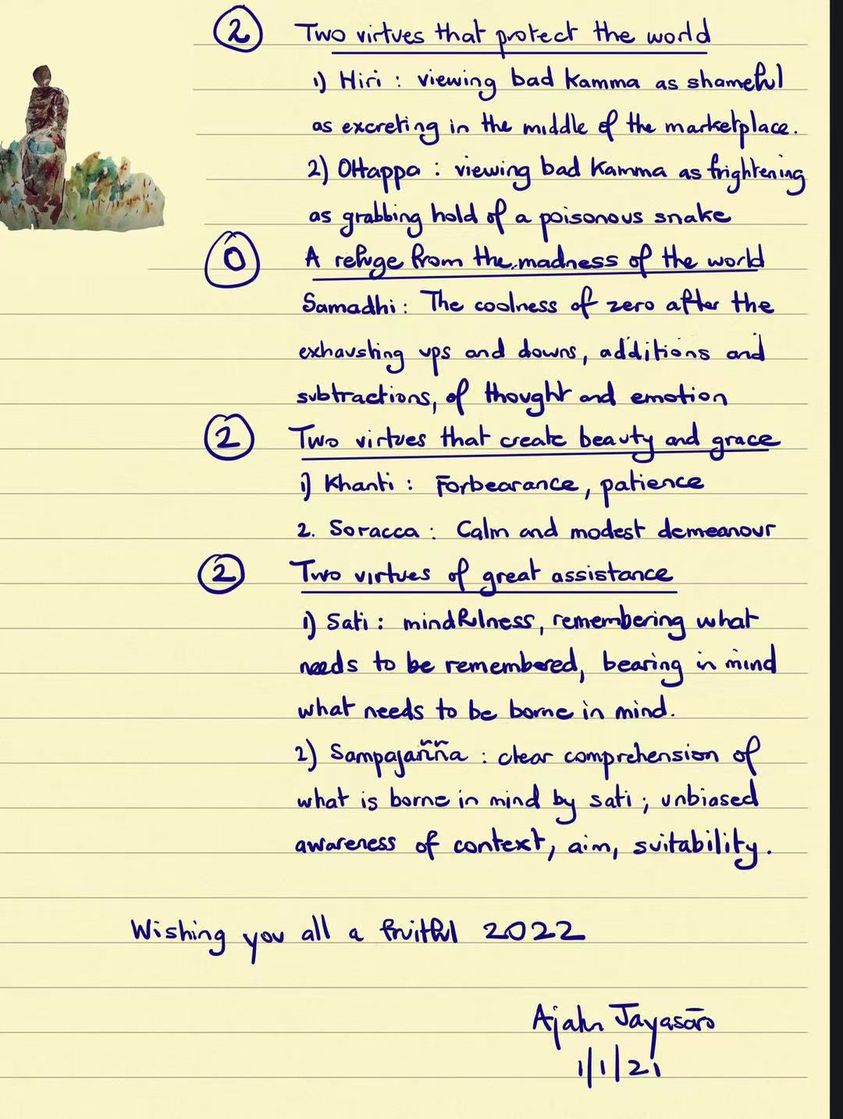 2 Two virtues that protect the world
1) Hiri : viewing bad Kamma as shameful
as excreting in the middle of the marketplace.
2) Ottappa : viewing bad Kamma as frightening
as grabbing hold of a poisonous snake
0 A refuge from the madness of the world
Samadhi : The coolness of zero after the
exhausting ups and downs, additions and
subtractions, of thought and emotion
2 Two virtues that create beauty and grace
1) Khanti : Forbearance, patience
2. Soracca : Calm and modest demeanour
2 Two virtues of great assistance
1) Sati : mindfulness, remembering what
needs to be remembered, bearing in mind
what needs to be borne in mind.
2) Sampajañña : clear comprehension of
what is borne in mind by sati ; unbiased
awareness of context, aim, suitability.
Wishing you all a fruitful 2022
Ajahn Jayasāro
1/1/21